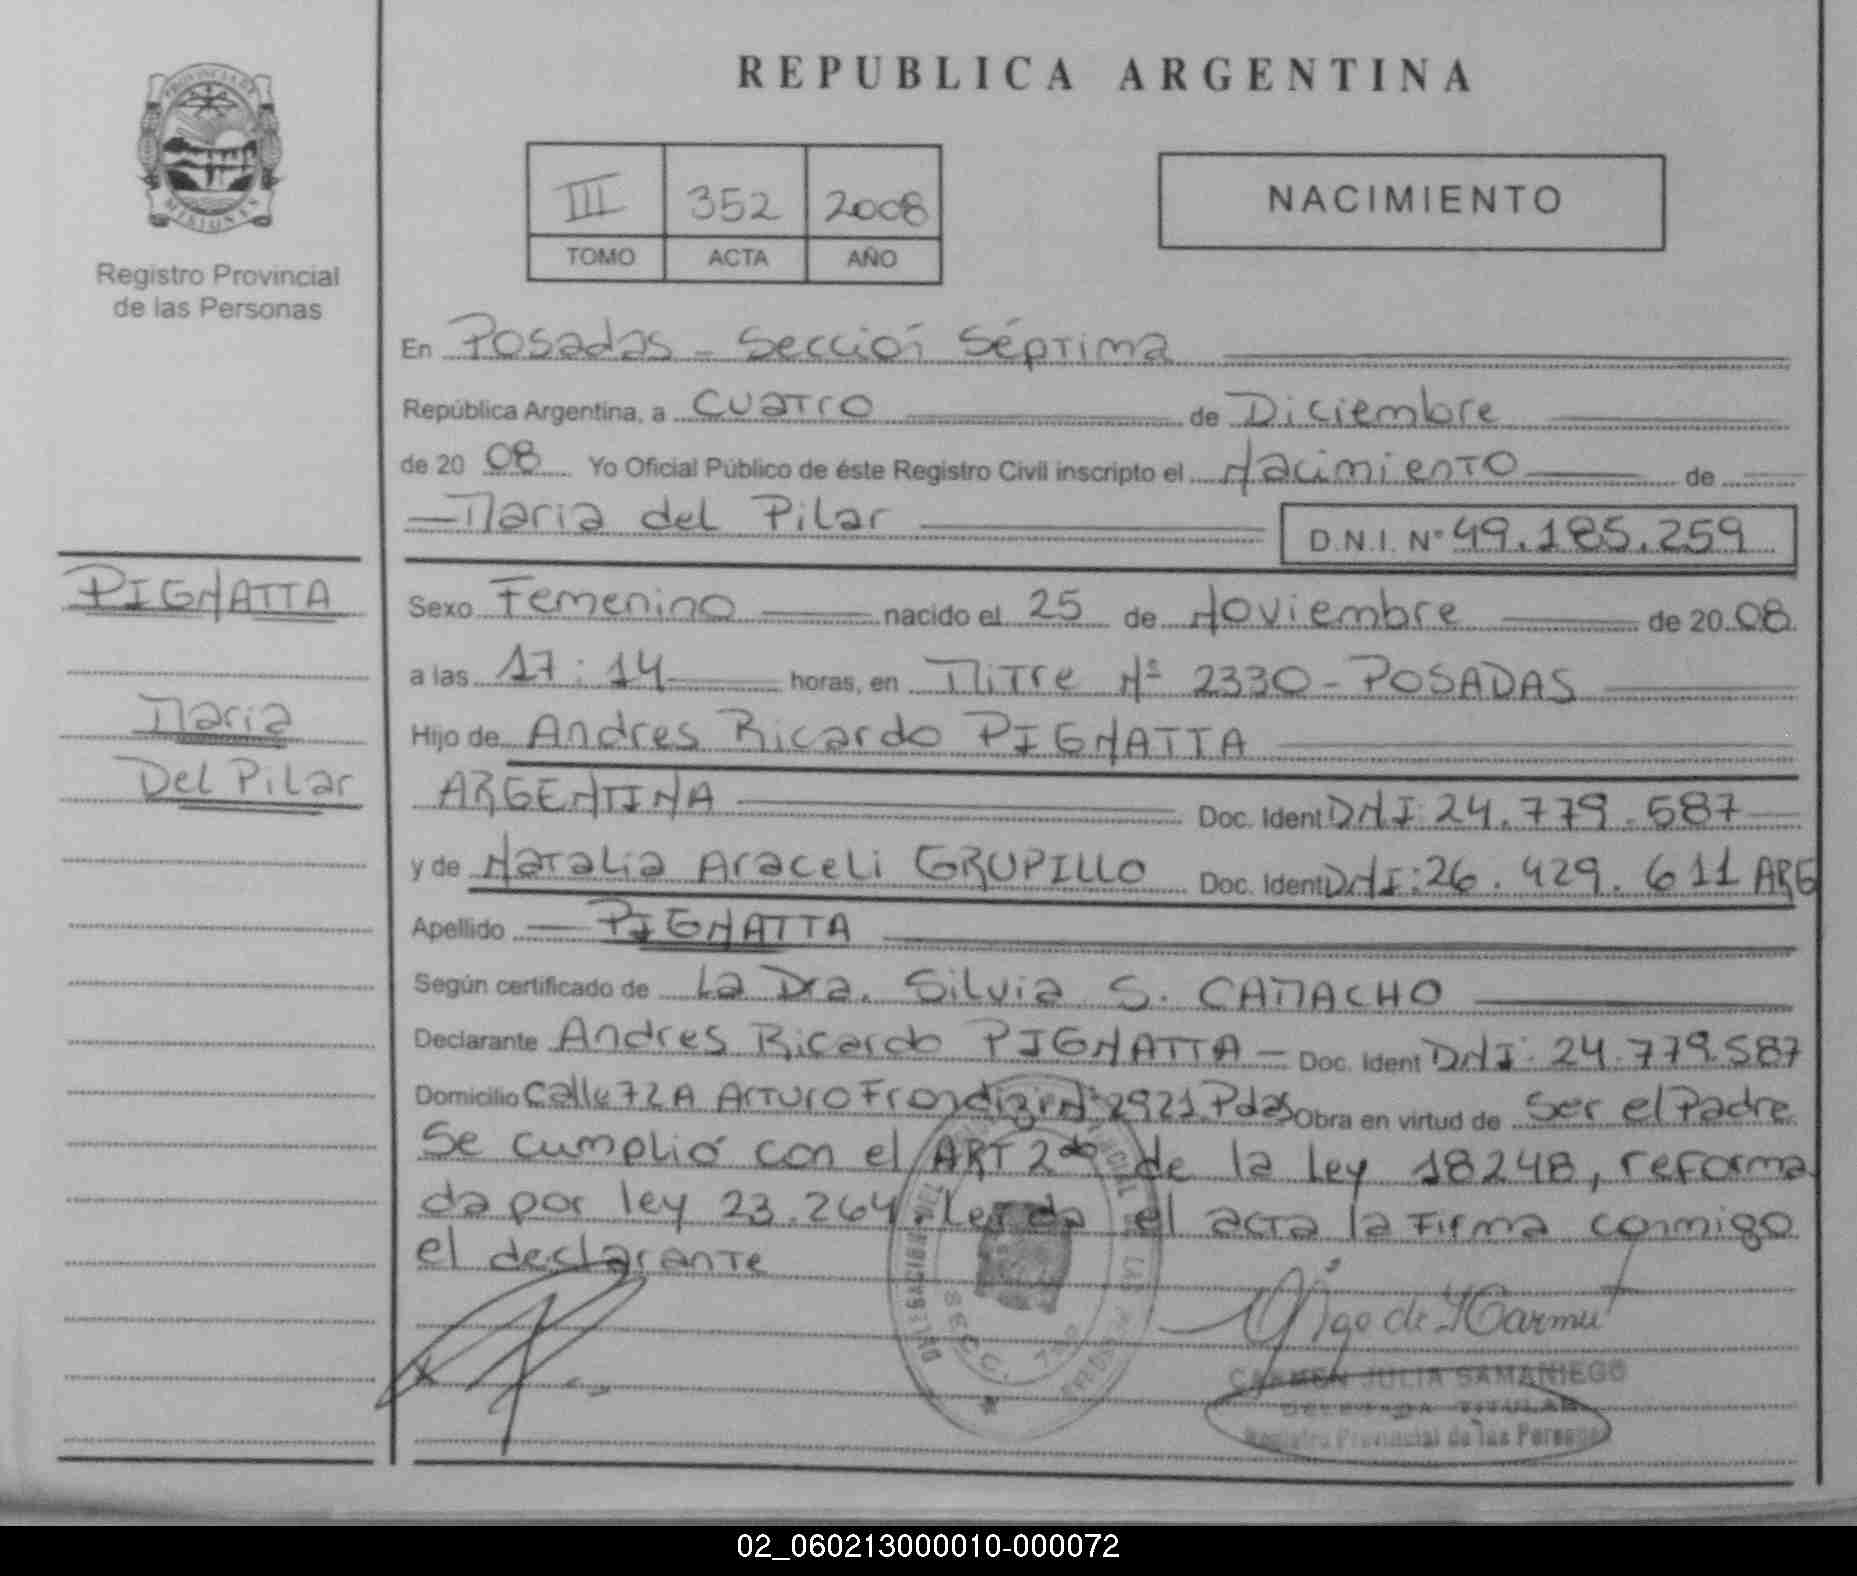 PROVINCIA DE
MISIONES
Registro Provincial
de las Personas
REPUBLICA ARGENTINA
III 352 2008
TOMO ACTA AÑO
NACIMIENTO
En Posadas - Secciói Séptima
República Argentina, a Cuatro de Diciembre
de 20 08 Yo Oficial Público de éste Registro Civil inscripto el Nacimiento de
Maria del Pilar D.N.I. Nº 49.185.259
PIGNATTA
Maria
Del Pilar
Sexo Femenino nacido el 25 de Noviembre de 20 08
a las 17:14 horas, en Mitre Nº 2330 - POSADAS
Hijo de Andres Ricardo PIGNATTA
ARGENTINA Doc. Ident DNI: 24.779.587
y de Natalia Araceli GRUPILLO Doc. Ident DNI: 26.429.611 ARG
Apellido PIGNATTA
Según certificado de La Dra. Silvia S. CAMACHO
Declarante Andres Ricardo PIGNATTA - Doc. Ident DNI: 24.779.587
Domicilio Calle 72A Arturo Frondizi Nº 2921 Pdas Obra en virtud de Ser el Padre
Se cumplió con el ART 2do de la Ley 18248, reforma
da por ley 23.264. Leida el acta la Firma conmigo
el declarante
SECC. 7
CARMEN JULIA SAMANIEGO
DELEGADA TITULAR
Registro Provincial de las Personas
02_060213000010-000072